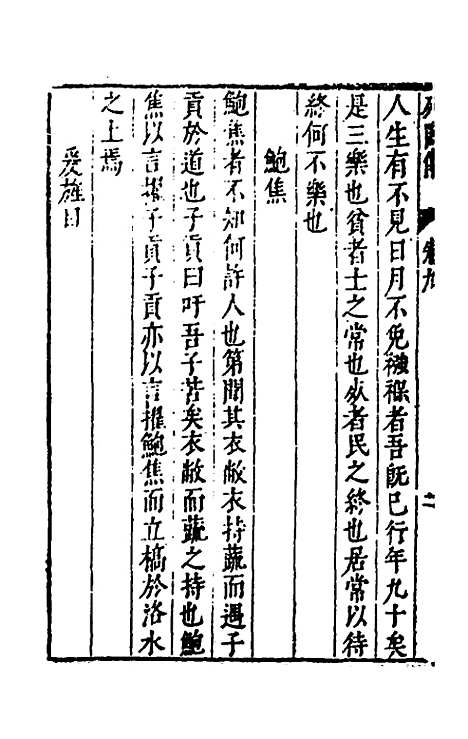 卷九
二
人生有不見日月不免襁褓者吾旣已行年九十矣
是三樂也貧者士之常也死者民之終也居常以待
終何不樂也
鮑焦
鮑焦者不知何許人也第聞其衣敝衣持蔬而遇子
貢於道也子貢曰吁吾子苦矣衣敝而蔬之持也鮑
焦以言讓子貢子貢亦以言摧鮑焦而立槁於洛水
之上焉
爰旌目